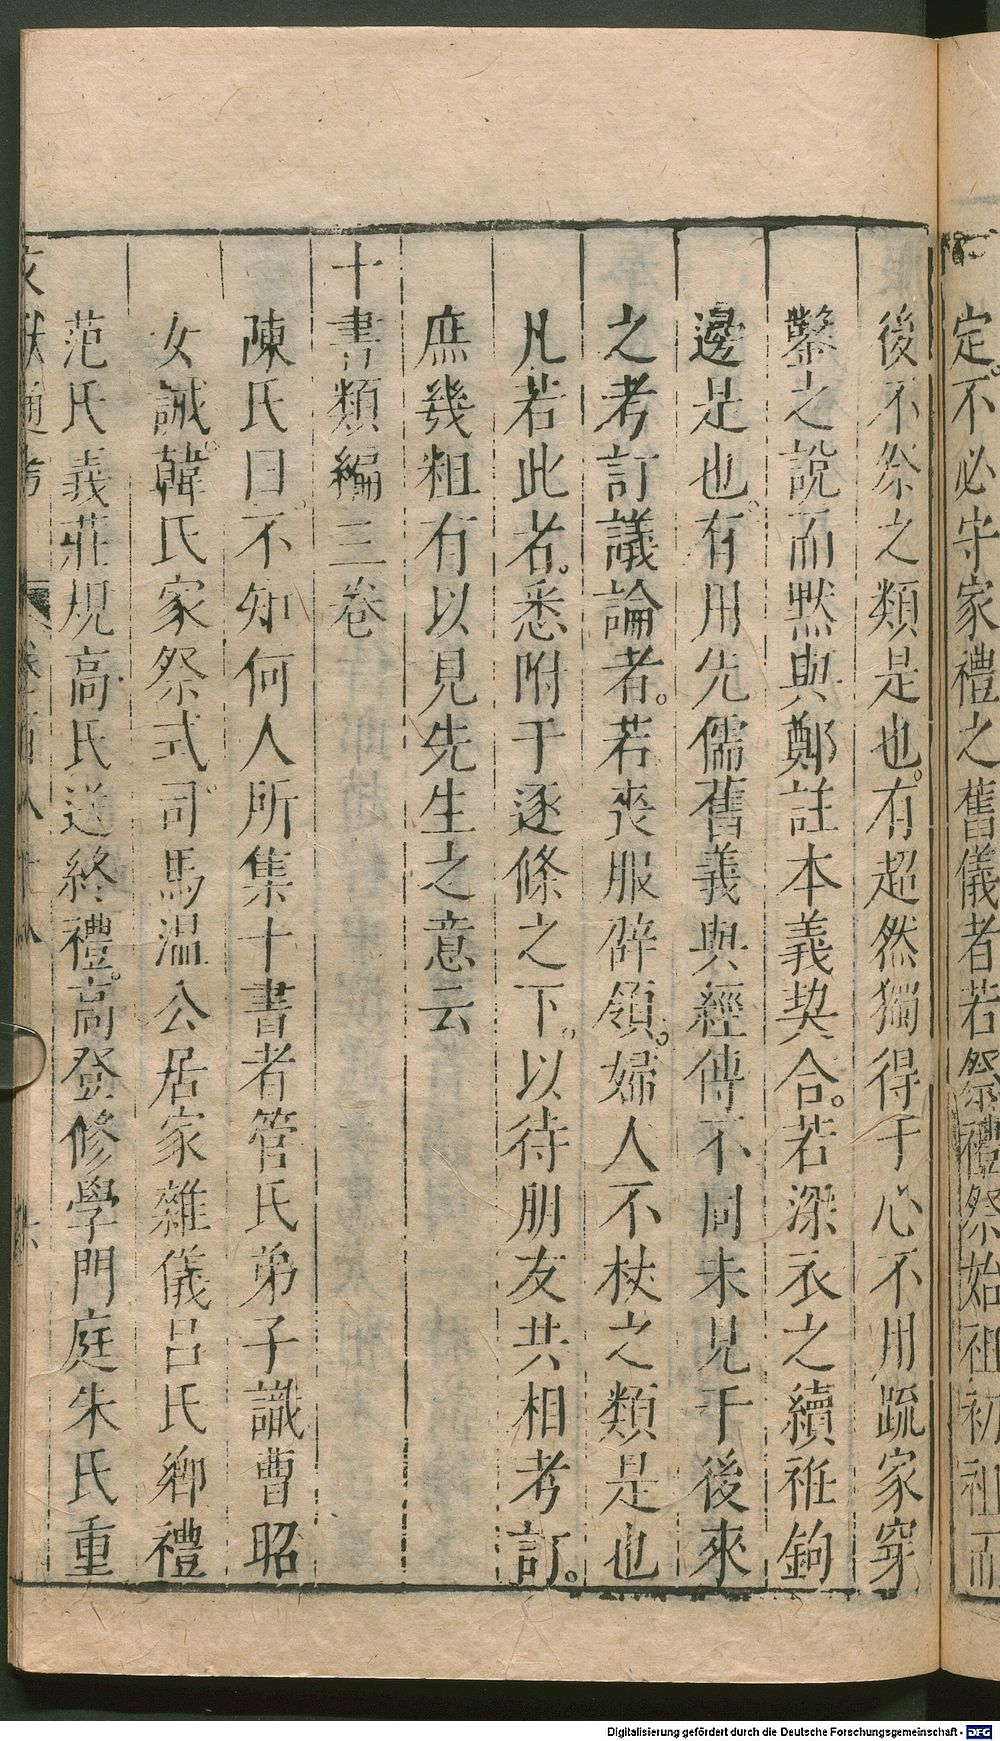 定。不必守家禮之舊儀者若祭禮祭始祖初祖而
後不祭之類是也。有超然獨得于心不用疏家穿
鑿之說而黙與鄭註本義契合。若深衣之續袵鉤
邊是也。有用先儒舊義與經傳不同未見于後來
之考訂議論者。若喪服辟領。婦人不杖之類是也
凡若此者。悉附于逐條之下。以待朋友共相考訂。
庶幾粗有以見先生之意云
十書類編三卷
陳氏曰。不知何人所集十書者管氏弟子識曹昭
女誡。韓氏家祭式。司馬温公居家雜儀吕氏鄉禮
范氏義莊規高氏送終禮。高登修學門庭朱氏重
文獻通考
Digitalisierung gefördert durch die Deutsche Forschungsgemeinschaft - DFG